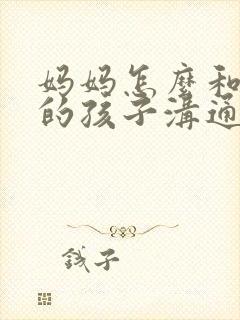 妈妈怎麼和
的孩子溝通
钱子